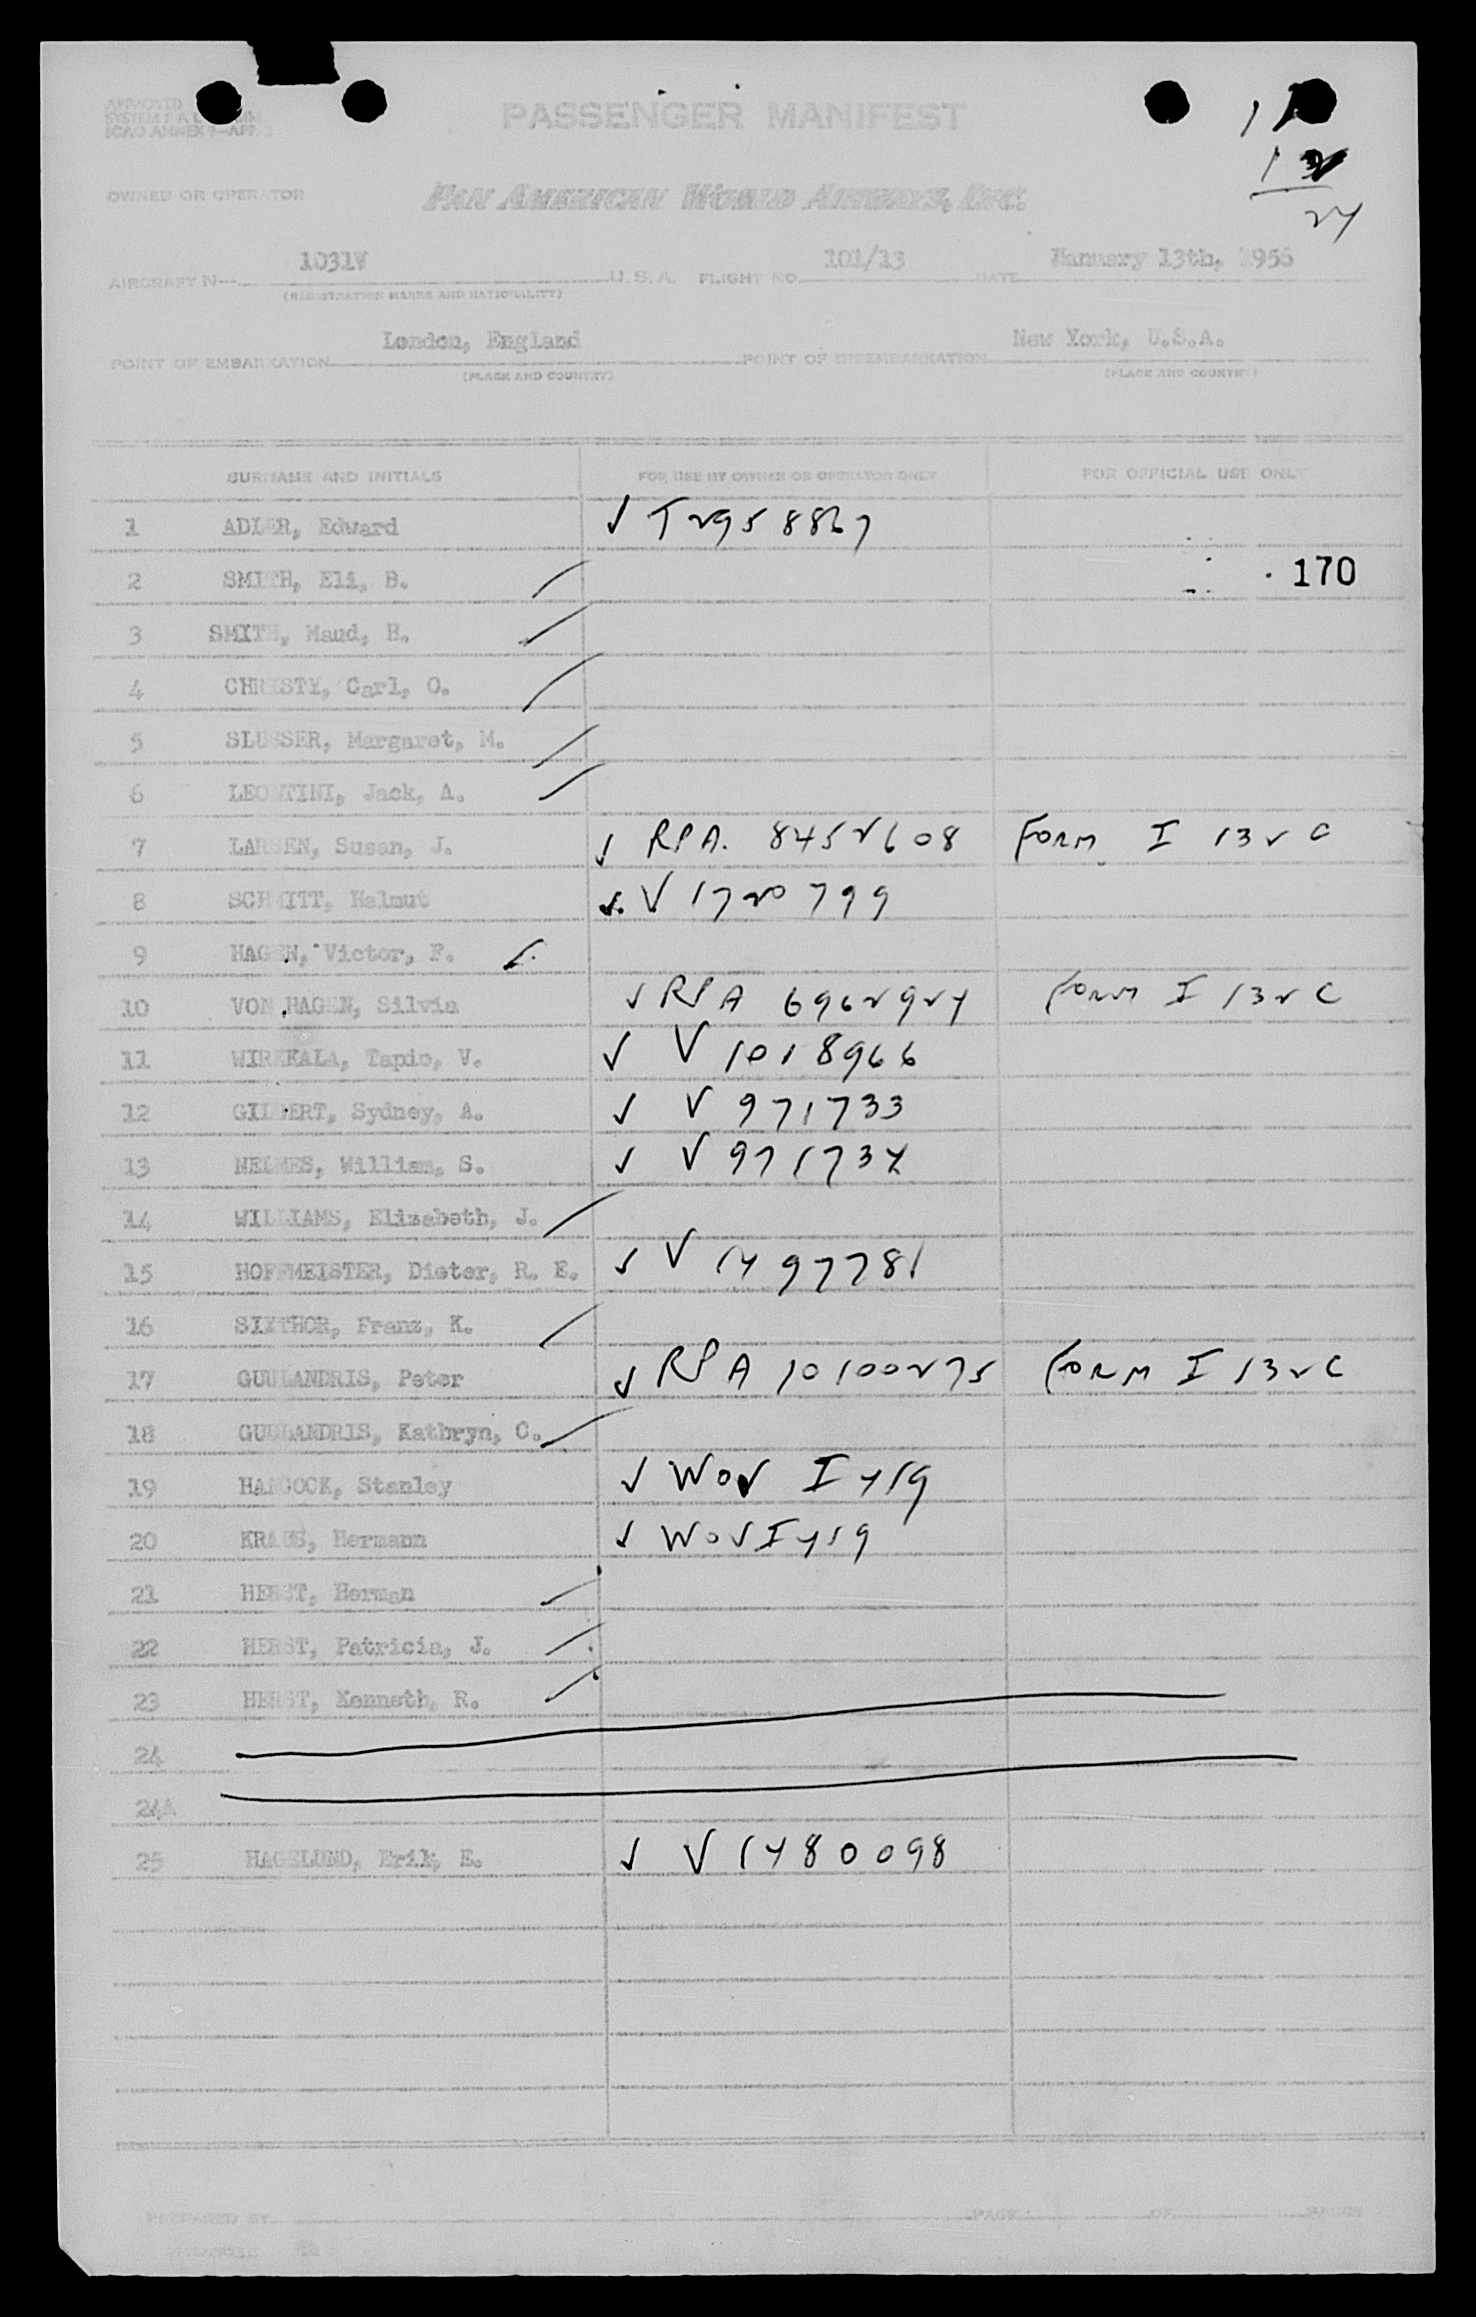 APPROVED
ICAO ANNEX 9—APP. 3
PASSENGER MANIFEST
11
13
24
OWNED OR OPERATOR PAN AMERICAN WORLD AIRWAYS, INC.
AIRCRAFT N— 1031V U. S. A. FLIGHT NO. 101/13 DATE January 13th, 1956
(REGISTRATION MARKS AND NATIONALITY)
POINT OF EMBARKATION London, England POINT OF DISEMBARKATION New York, U.S.A.
(PLACE AND COUNTRY) (PLACE AND COUNTRY)
SURNAME AND INITIALS FOR USE BY OWNER OR OPERATOR ONLY FOR OFFICIAL USE ONLY
1 ADLER, Edward ✓ T2958867
2 SMITH, Eli, B. 170
3 SMITH, Maud, H.
4 CHRISTY, Carl, O.
5 SLUSSER, Margaret, M.
6 LEONTINI, Jack, A.
7 LARSEN, Susan, J. ✓ RPA. 8452608 FORM I 132 C
8 SCHMITT, Helmut ✓ V 1720799
9 HAGEN, Victor, F. ✓
10 VON HAGEN, Silvia ✓ RPA 6962924 FORM I 132 C
11 WIRKKALA, Tapio, V. ✓ V 1018966
12 GILBERT, Sydney, A. ✓ V 971733
13 NELMES, William, S. ✓ V 971734
14 WILLIAMS, Elizabeth, J.
15 HOFFMEISTER, Dieter, R. E. ✓ V 1497781
16 SIXTHOR, Franz, K.
17 GOULANDRIS, Peter ✓ RPA 10100275 FORM I 132 C
18 GOULANDRIS, Kathryn, C.
19 HANCOCK, Stanley ✓ WOV I 419
20 KRAUS, Hermann ✓ WOV I 419
21 HERST, Herman
22 HERST, Patricia, J.
23 HERST, Kenneth, R.
24
24A
25 HAGELUND, Erik, E. ✓ V 1480098
PREPARED BY PAGE OF PAGES